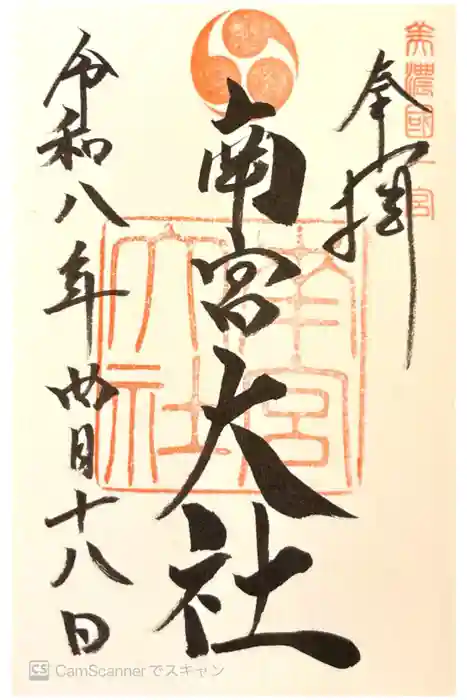 美濃國一宮
奉拝
南宮大社
南宮大社
令和八年四月十八日
CS CamScannerでスキャン